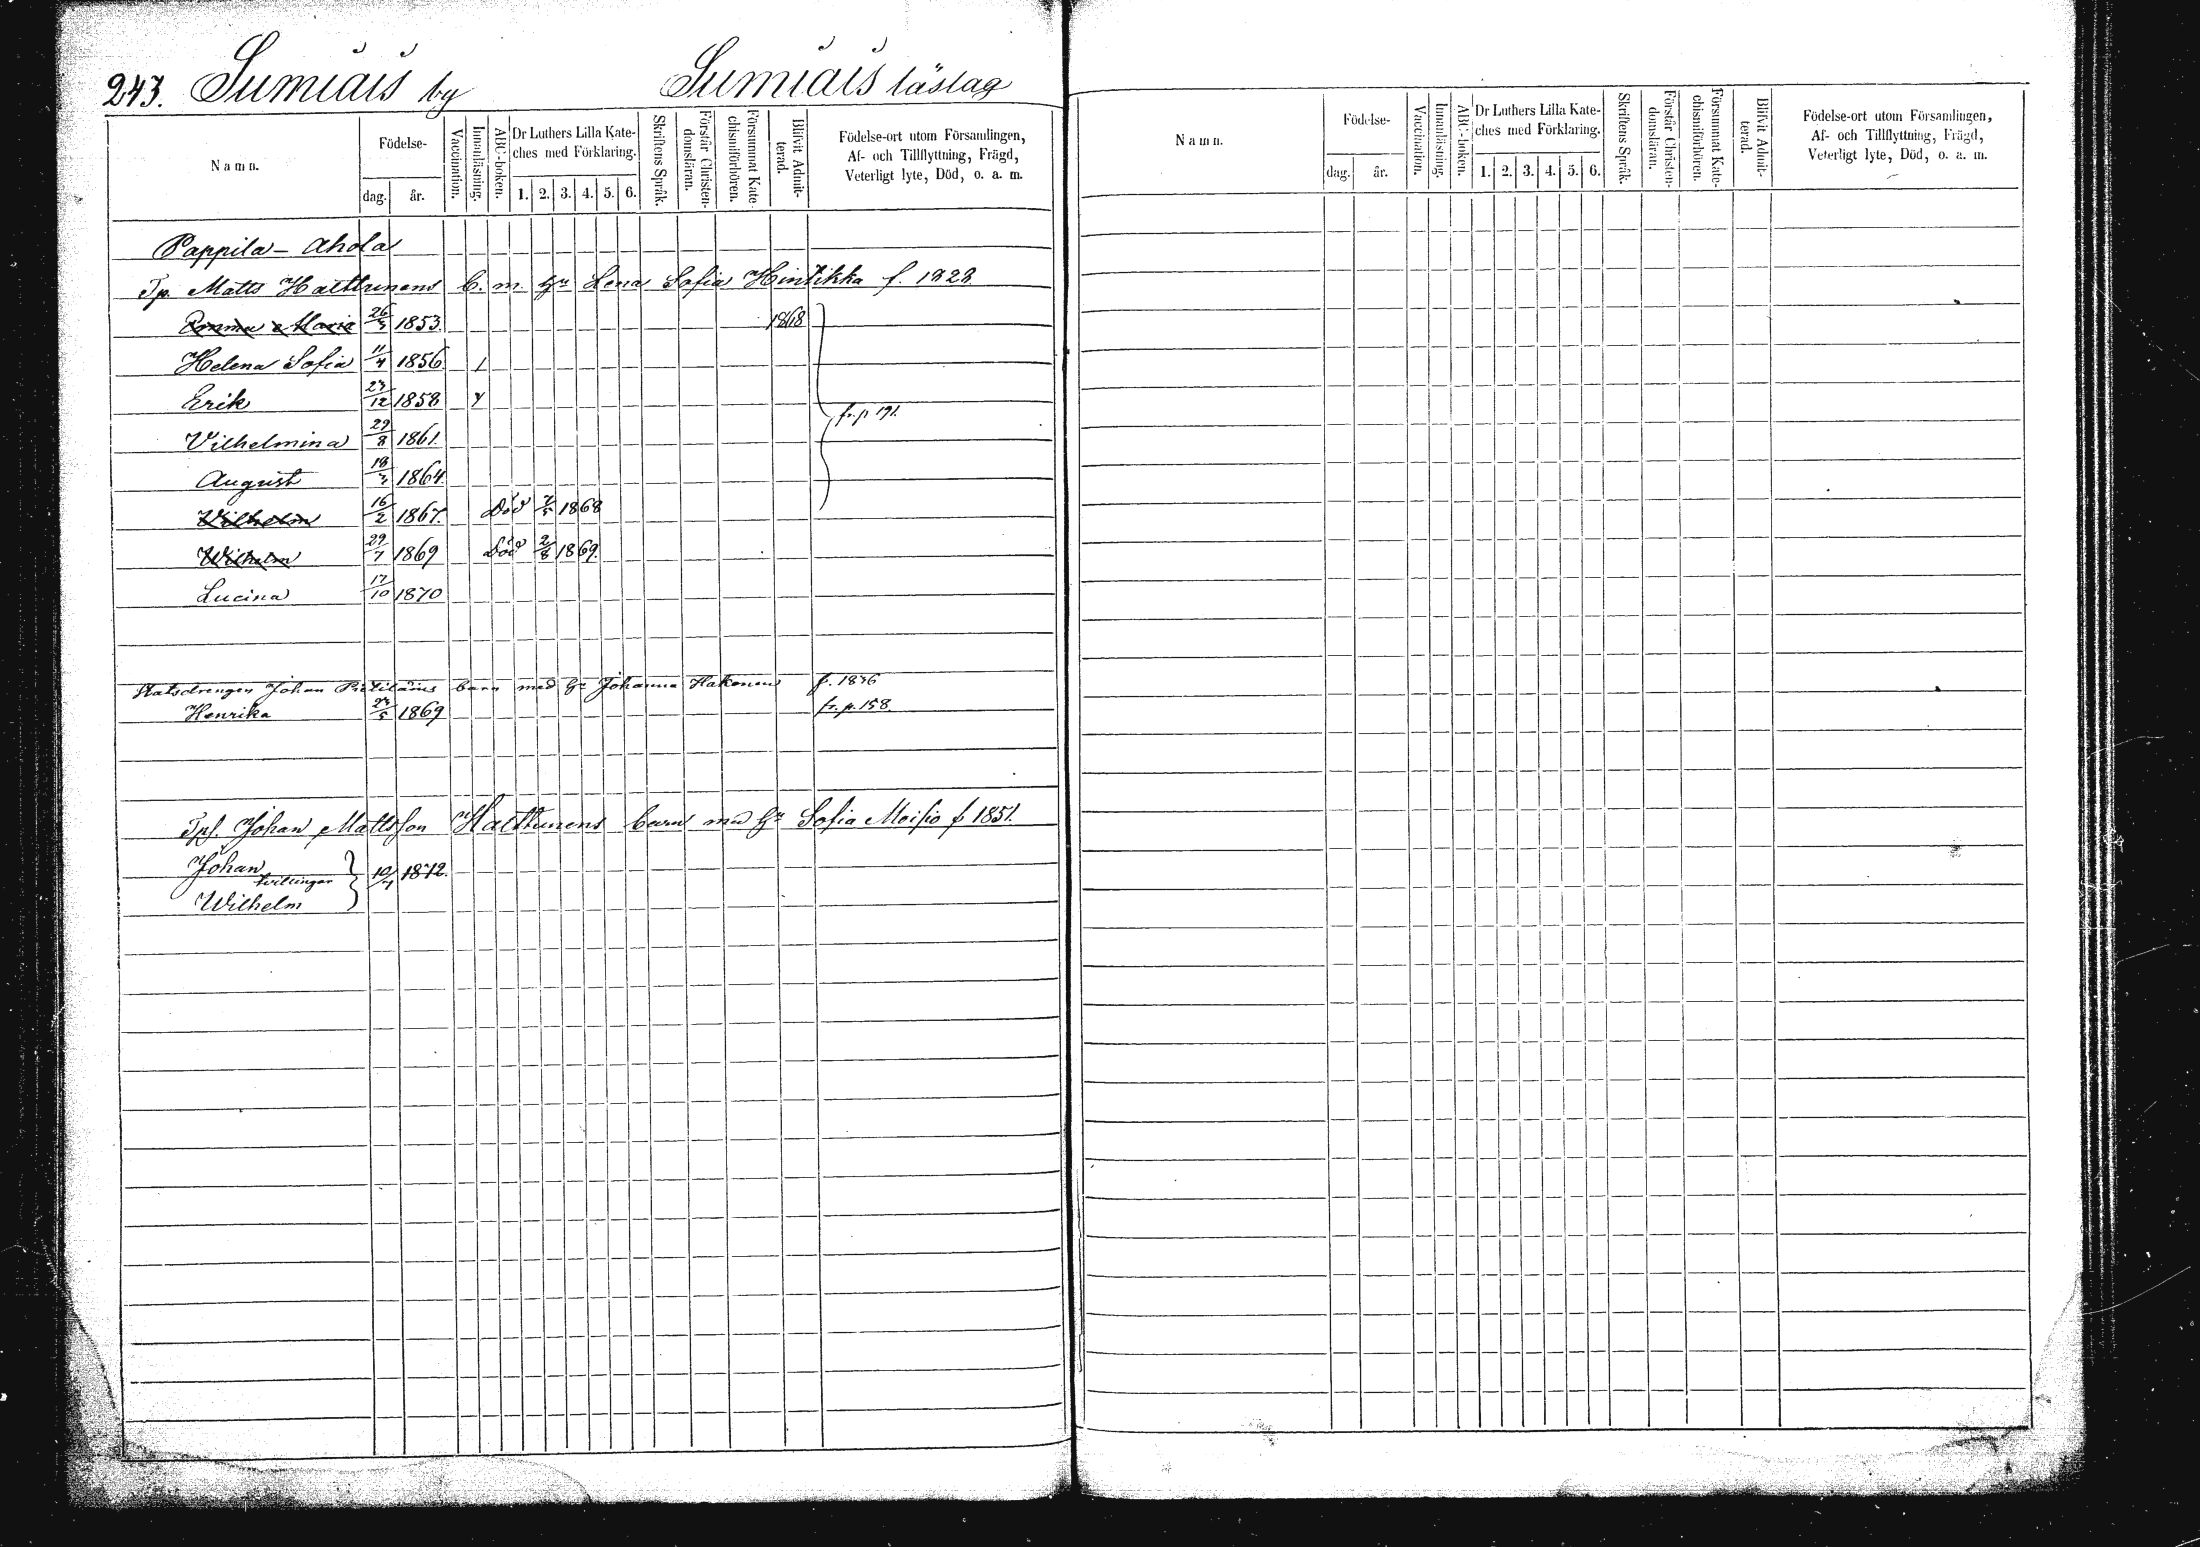 243. Sumiais by Sumiais läslag
Namn. Födelse- dag. år. Vaccination. Innanläsning. ABC-boken. Dr Luthers Lilla Kate-ches med Förklaring. 1. 2. 3. 4. 5. 6. Skriftens Språk. Förstår Christen-domsläran. Försummat Kate-chismiförhören. Blifvit Admit-terad. Födelse-ort utom Församlingen, Af- och Tillflyttning, Frägd, Veterligt lyte, Död, o. a. m.
Pappila - Ahola
Tp. Matts Halttunens b. m. hu Lena Sofia Hintikka f. 1823
Emma Maria 26/3 1853. 1868
Helena Sofia 11/4 1856 /
Erik 23/12 1858 y
fr. p 191.
Vilhelmina 29/8 1861.
August 18/3 1864
Wilhelm 16/2 1867. Död 7/5 1868
Wilhelm 29/7 1869 Död 2/8 1869.
Lucina 17/10 1870
Statsdrengen Johan Pietiläins barn med hu Johanna Hakonen f. 1836
Henrika 23/5 1869 fr. p. 158.
Tpf. Johan Mattsson Halttunens barn med hu Sofia Moisio f 1851.
Johan 10/4 1872.
tvillingar
Wilhelm
Namn. Födelse- dag. år. Vaccination. Innanläsning. ABC-boken. Dr Luthers Lilla Kate-ches med Förklaring. 1. 2. 3. 4. 5. 6. Skriftens Språk. Förstår Christen-domsläran. Försummat Kate-chismiförhören. Blifvit Admit-terad. Födelse-ort utom Församlingen, Af- och Tillflyttning, Frägd, Veterligt lyte, Död, o. a. m.